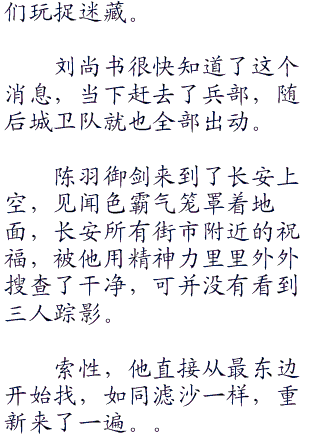 们玩捉迷藏。
刘尚书很快知道了这个
消息，当下赶去了兵部，随
后城卫队就也全部出动。
陈羽御剑来到了长安上
空，见闻色霸气笼罩着地
面，长安所有街市附近的祝
福，被他用精神力里里外外
搜查了干净，可并没有看到
三人踪影。
索性，他直接从最东边
开始找，如同滤沙一样，重
新来了一遍。。